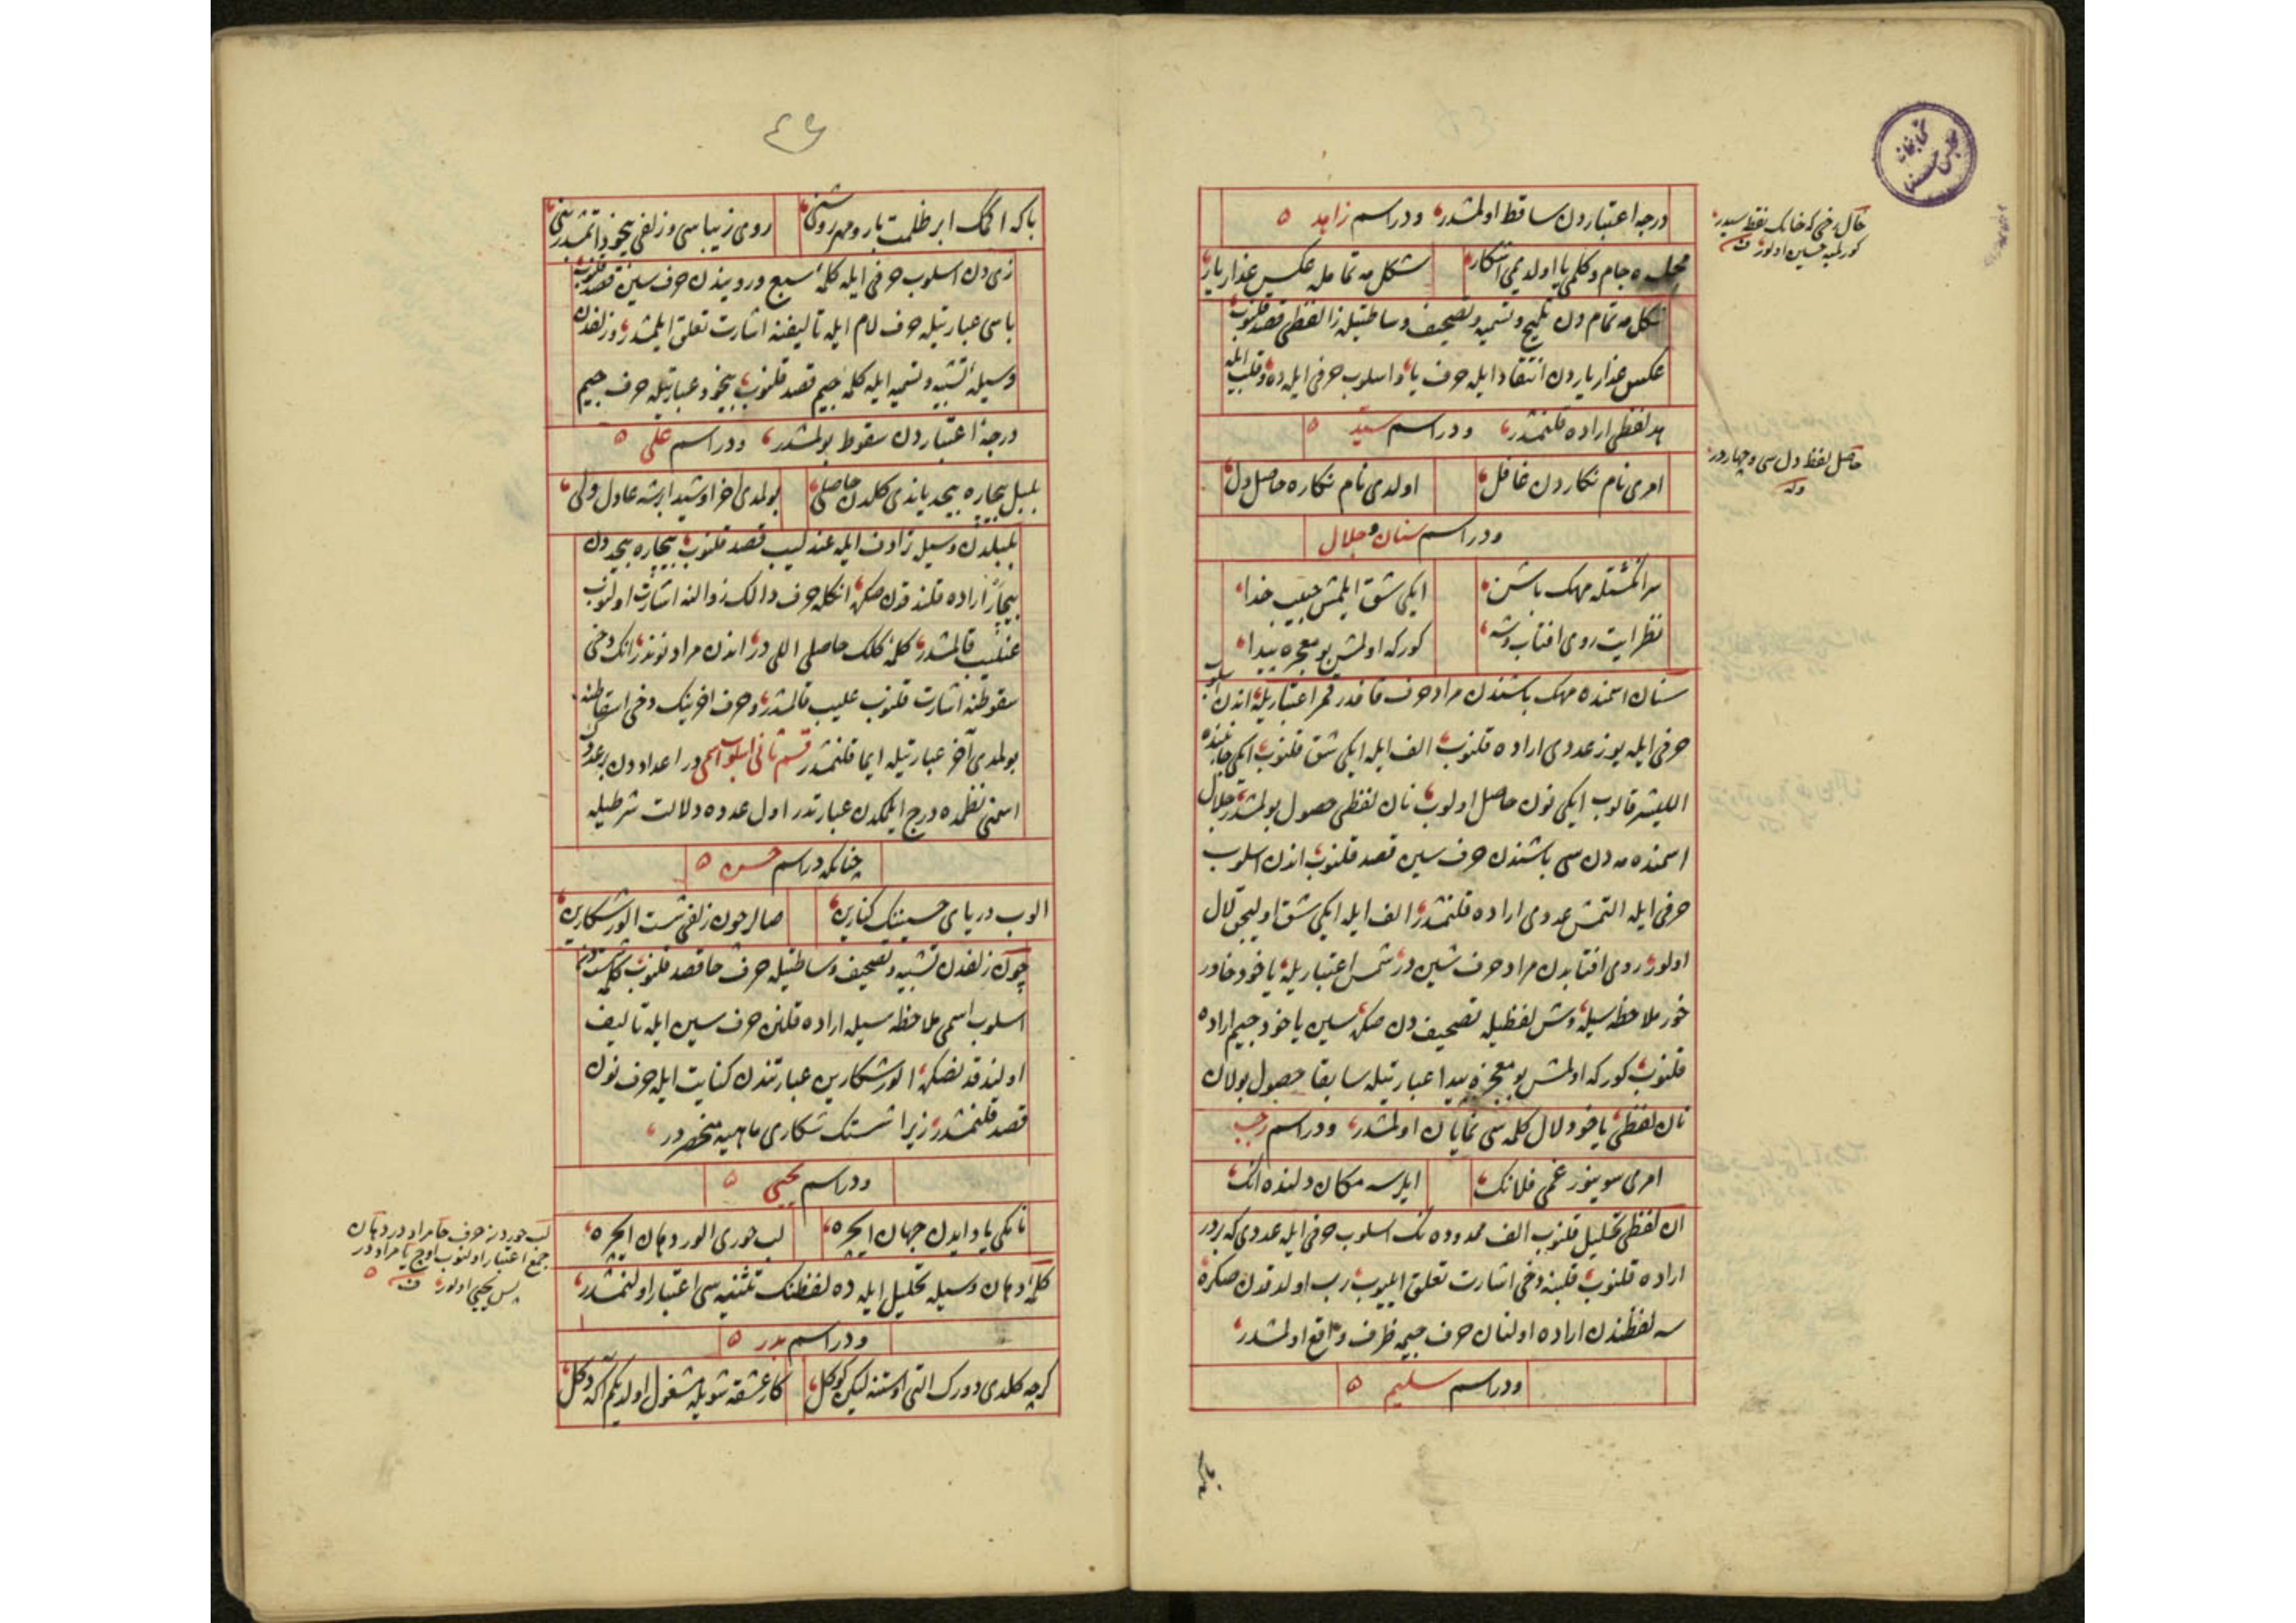 درجه اعتباردن ساقط اولمشدر ودراسم زاهد
ده جام و کلمی یا اولدیمی آشکار شکل مه تمامله عکس عذار یار
شکل مه تمام دن تلمیح و تسمیه و تصحیف وساطتیله زا لفظی قصد قلنوب
عکس عذار یاردن انتقاد ایله حرف یا و اسلوب حرفی ایله ده و قلب ایله
هد لفظی اراده قلنمشدر ودراسم سید
امری نام نکاردن غافل اولدی نام نکاره حاصل دل
ودراسم سنان و جلال
سر انکشتله مهک باشن ایکی شق ایلمش حبیب خدا
نظر ایت روی افتاب وشه کورکه اولمش بو معجزه پیدا
سنان اسمنده مهک باشندن مراد حرف قافدر قمر اعتباریله اندن اسلوب
حرفی ایله یوز عددی اراده قلنوب الف ایله ایکی شق قلنوب ایکی جانبنده
اللیشر قالوب ایکی نون حاصل اولوب نان لفظی حصول بولمشدر جلال
اسمنده مه دن سی باشندن حرف سین قصد قلنوب اندن اسلوب
حرفی ایله التمش عددی اراده قلنمشدر الف ایله ایکی شق اولیجق لال
اولور روی افتابدن مراد حرف شین در شمس اعتباریله یاخود خاور
خور ملاحظه سیله وش لفظیله تصحیف دن صکره سین یاخود جیم اراده
قلنوب کورکه اولمش بو معجزه پیدا عبارتیله سابقا حصول بولان
نان لفظی یاخود لال کلمه سی نمایان اولمشدر ودراسم رجب
امری سوینور غمی فلانک ایلرسه مکان دلنده انک
ان لفظی تحلیل قلنوب الف ممدوده نک اسلوب حرفی ایله عددی که بردر
اراده قلنوب قلبنه دخی اشارت تعلق ایلیوب رب اولدقدن صکره
سه لفظندن اراده اولنان حرف جیمه ظرف واقع اولمشدر
ودراسم سلیم
خال رخی که خانک نقطه سیدر
حاصل لفظ دل سی و چهار در
وله
٤٦
باکه اکمک ابر ظلمت بار و مهر روشنی روی زیباسی و زلفی بیخود ایتمشدر بنی
زی دن اسلوب حرفی ایله کلمه سبع و رویندن حرف سین قصد قلنوب
باسی عبارتیله حرف لام ایله تالیفنه اشارت تعلق ایلمشدر و زلفدن
وسیله تشبیه و تسمیه ایله کلمه جیم قصد قلنوب بیخود عبارتیله حرف جیم
درجه اعتباردن سقوط بولمشدر ودراسم علی
بلبل بیچاره بیحد یاندی کلدن حاصلی بولمدی اخر او شیدا برشه عادل ولی
بلبلدن وسیل ترادف ایله عندلیب قصد قلنوب بیچاره بیحد دن
بیچار اراده قلندقدن صکره انکله حرف دالک زوالنه اشارت اولنوب
عنلیب قالمشدر کلمه کلک حاصلی اللی در اندن مراد نوندر انک دخی
سقوطنه اشارت قلنوب علیب قالمشدر و حرف اخرینک دخی اسقاطنه
بولمدی آخر عبارتیله ایما قلنمشدر قسم ثانی اسلوب اسمی در اعداددن بر عددک
اسمنی نظمده درج ایلمکدن عبارتدر اول عدده دلالت شرطیله
چنانکه دراسم حسن
الوب دریای حسننک کنارین صالر چون زلفی شست الور شکارین
چون زلفدن تشبیه و تصحیف وساطتیله حرف حا قصد قلنوب کلمه شستدن
اسلوب اسمی ملاحظه سیله اراده قلنن حرف سین ایله تالیف
اولندقدنصکره الور شکارین عبارتندن کنایت ایله حرف نون
قصد قلنمشدر زیرا شستک شکاری ماهیه منحصردر
ودراسم یحیی
نانکی یاد ایدن جهان ایچره لب حوری الور دهان ایچره
کلمه دهان وسیله تحلیل ایله ده لفظنک تثنیه سی اعتبار اولنمشدر
ودراسم بدر
کرچه کلدی دورک التی اوستنه لیکن کوکل کار عشقه شویله مشغول اولدیکم اکه دکل
لب حوردن حرف حا مراددر دهان
جمع اعتبار اولنوب اوج یا مراددر
پس یحیی اولور